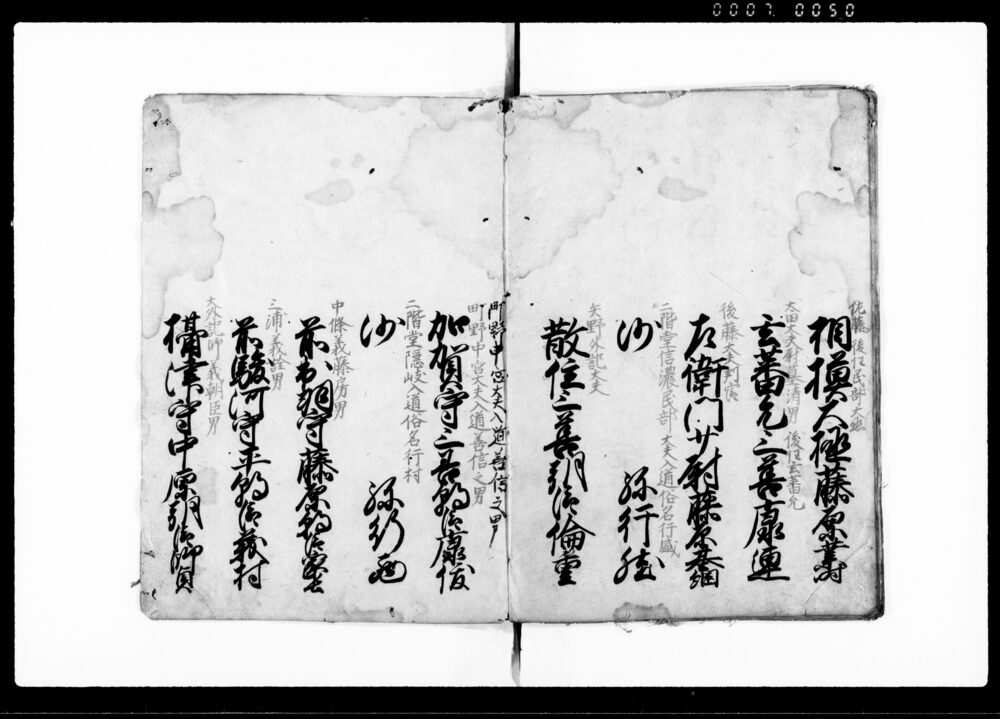 0007 0050
佐藤 後任民部大
相模大掾藤原業時
太田大夫 男 後任玄蕃允
玄蕃允三善康連
後藤大
左衛門少尉藤原基綱
二階堂信濃民部大夫入道俗名行盛
沙 弥行
矢野外記大夫
散位三善朝臣倫重
町野中宮大夫入道善信之男
町野中宮大夫入道善信之男
加賀守三善朝臣康俊
二階堂隠岐入道俗名行村
沙 弥行西
中條義藤房男
前出羽守藤原朝臣家長
三浦 義澄男
前駿河守平朝臣義村
大外記師 朝臣男
摂津守中原朝臣師員